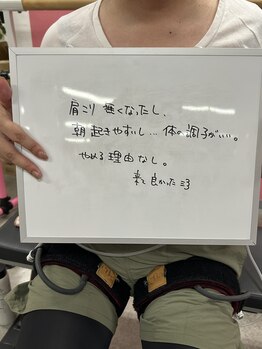 肩こり無くなったし、
朝起きやすいし…体の調子がいい。
やめる理由なし。
来て良かったニコ